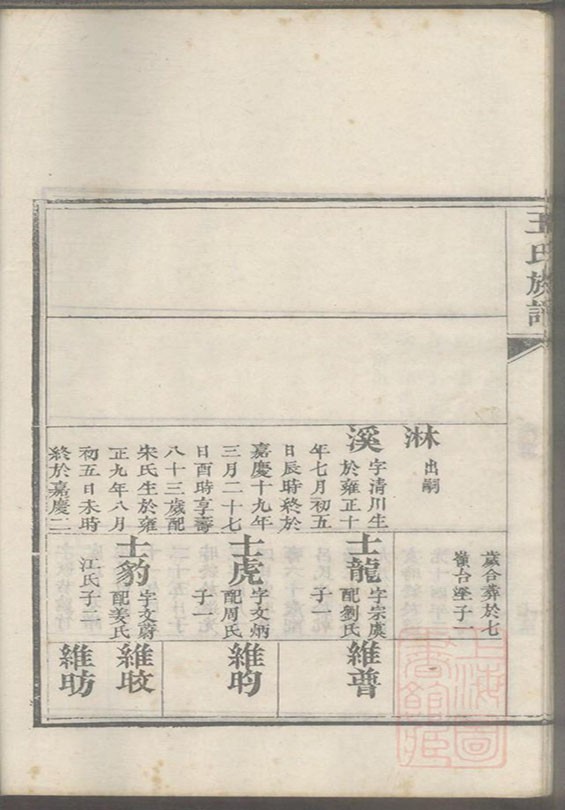 王氏族譜
淋
出嗣
溪
字清川生
於雍正十
年七月初五
日辰時終於
嘉慶十九年
三月二十七
日酉時享壽
八十三歲配
朱氏生於雍
正九年八月
初五日未時
終於嘉慶二
歲合葬於七
士龍
字宗虞
配劉氏
子一
士虎
字文炳
配周氏
子一
士豹
字文蔚
配姜氏
江氏子二
維普
維昀
維旼
維昉
上海圖
書館藏